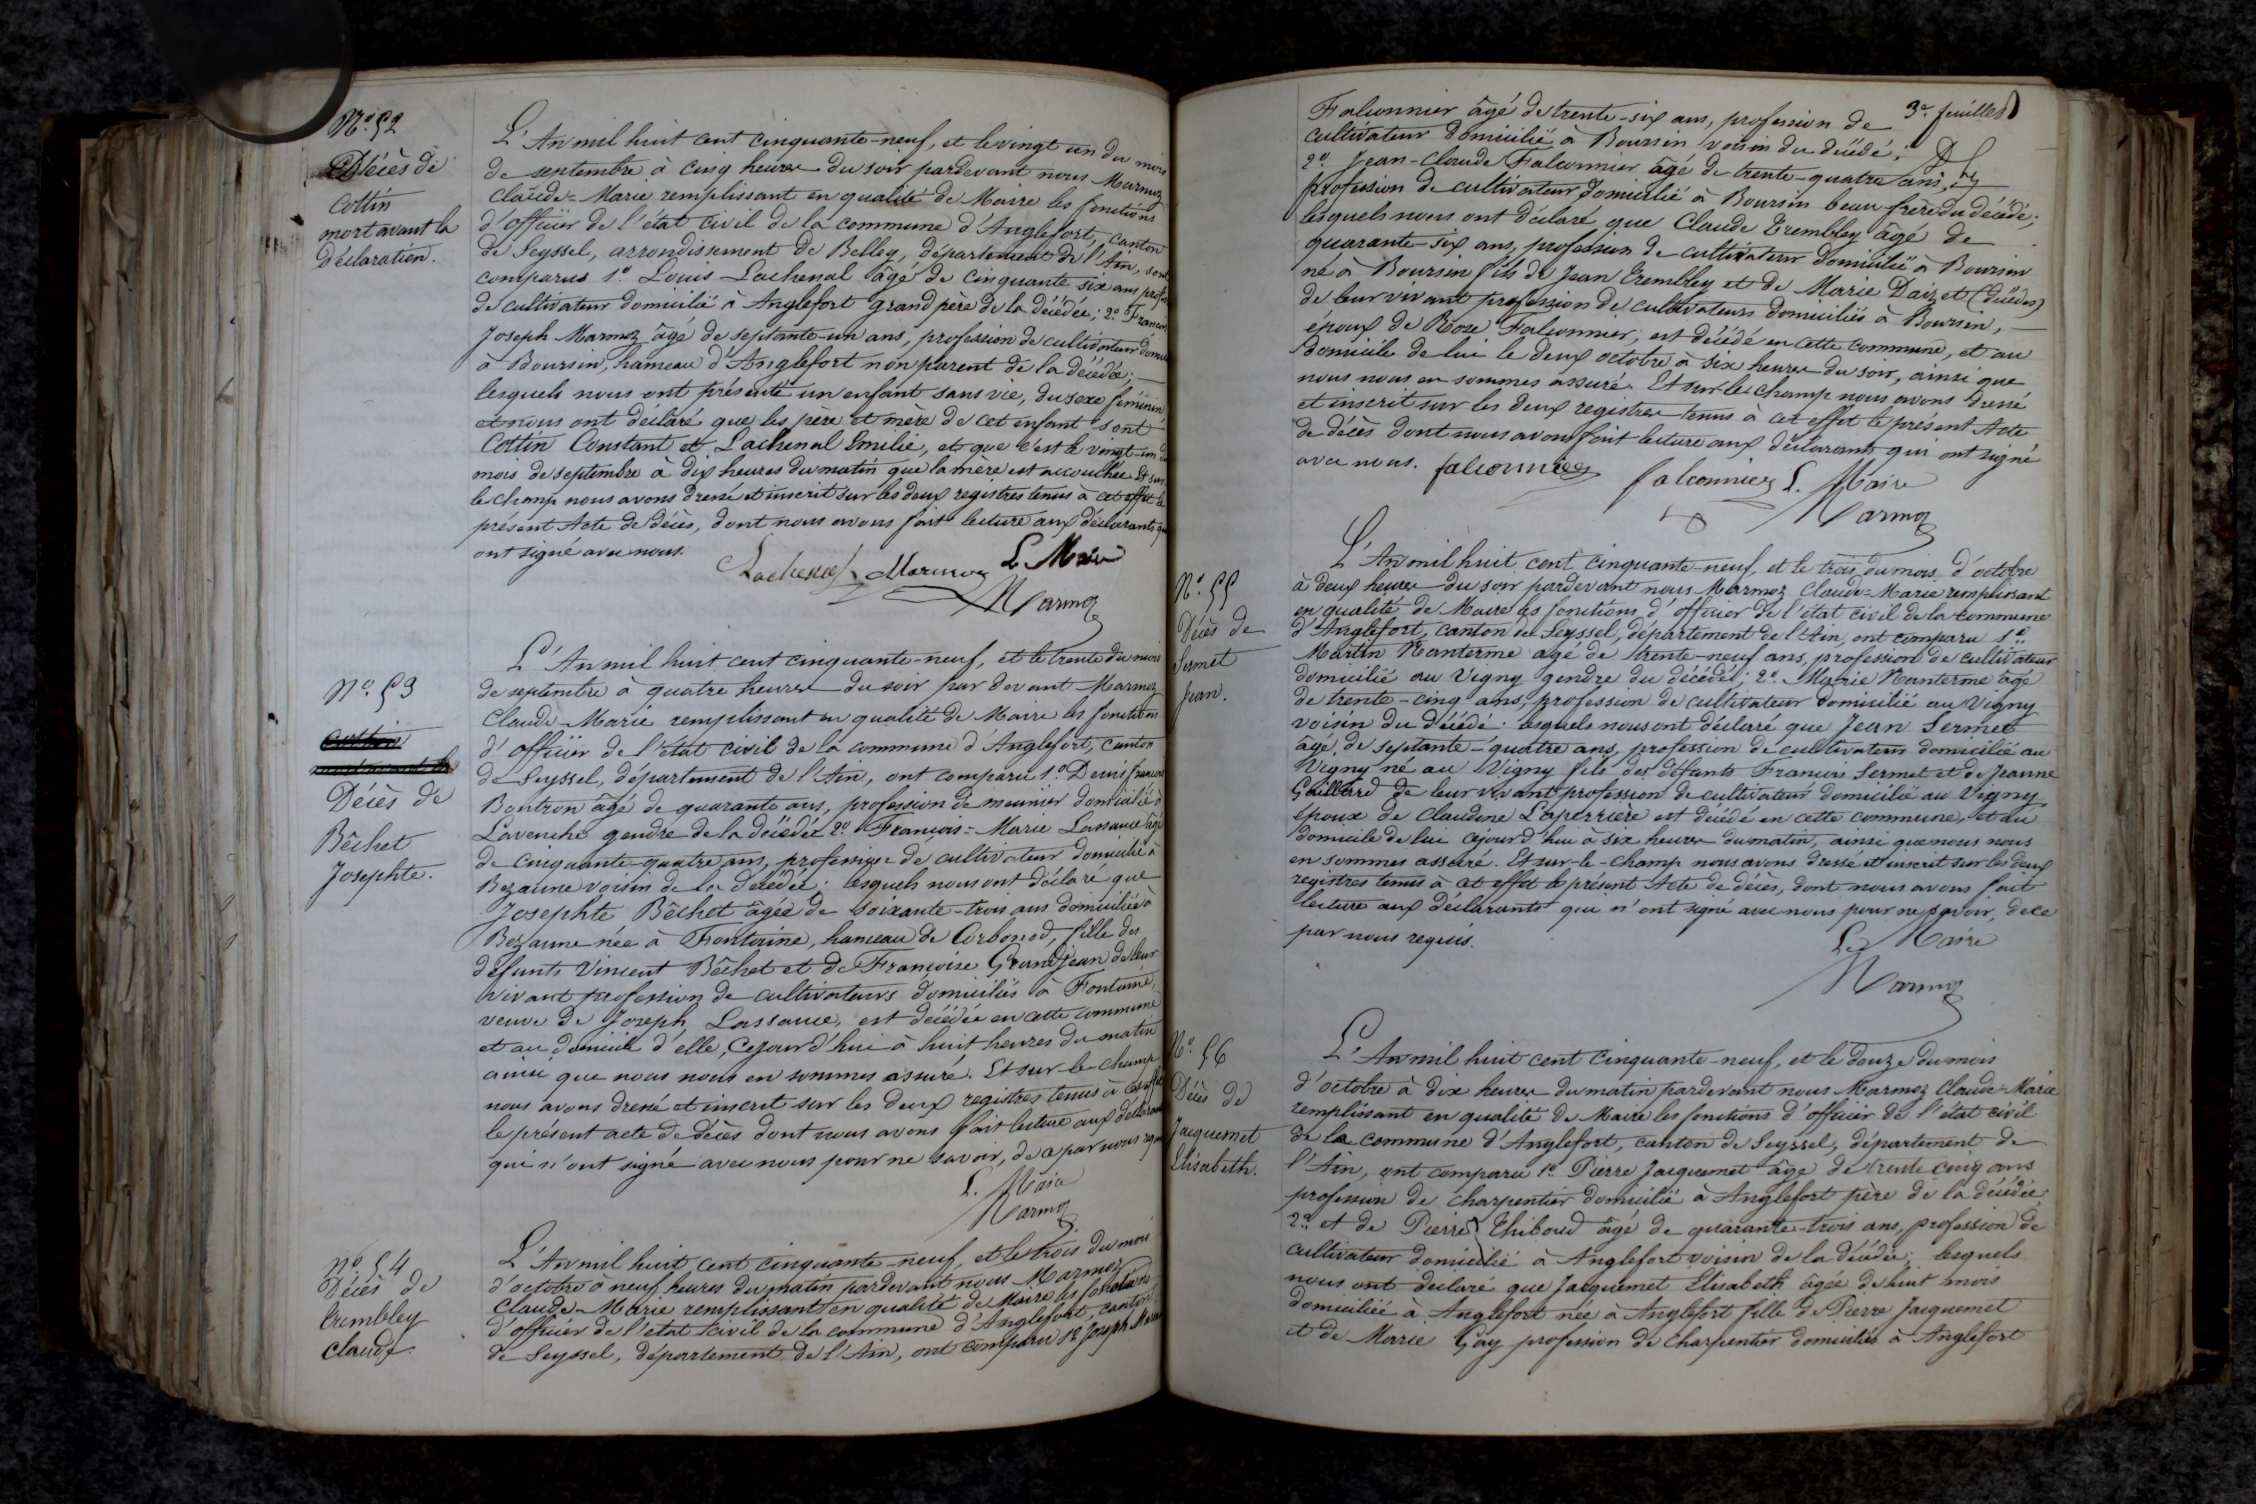 N° 52
Décès de
Cottin
mort avant la
déclaration.
L'An mil huit cent cinquante-neuf, et le vingt un du mois
de septembre à cinq heures du soir pardevant nous Marmoz
Claude-Marie remplissant en qualité de Maire les fonctions
d'officier de l'état civil de la commune d'Anglefort, canton
de Seyssel, arrondissement de Belley, département de l'Ain, sont
comparus 1° Louis Lachenal âgé de cinquante six ans profes
de cultivateur domicilié à Anglefort grand père de la décédée; 2° François
Joseph Marmoz âgé de septante-un ans, profession de cultivateur domici
à Boursin, hameau d'Anglefort non parent de la décédée;
lesquels nous ont présenté un enfant sans vie, du sexe féminin
et nous ont déclaré que les père et mère de cet enfant sont
Cottin Constant et Lachenal Emilie, et que c'est le vingt-un du
mois de septembre à dix heures du matin que la mère est accouchée. Et sur
le champ nous avons dressé et inscrit sur les deux registres tenus à cet effet le
présent Acte de décès, dont nous avons fait lecture aux déclarants qui
ont signé avec nous.
Lachenal Marmoz Le Maire
Marmoz
N° 53
Décès de
Bêchet
Josephte.
L'An mil huit cent cinquante-neuf, et le trente du mois
de septembre à quatre heures du soir par devant Marmoz
Claude-Marie remplissant en qualité de Maire les fonctions
d'officier de l'état civil de la commune d'Anglefort, canton
de Seyssel, département de l'Ain, ont comparu 1° Denis François
Bontron âgé de quarante ans, profession de meunier domicilié à
Lavenche gendre de la décédée 2° François-Marie Lassauce âgé
de cinquante-quatre ans, profession de cultivateur domicilié à
Bezanne voisin de la décédée; lesquels nous ont déclaré que
Josephte Bêchet âgée de soixante-trois ans domiciliée à
Bezanne née à Fontaine, hameau de Corbonod, fille des
défunts Vincent Bêchet et de Françoise Grandjean de leur
vivant profession de cultivateurs domiciliés à Fontaine,
veuve de Joseph Lassauce, est décédée en cette commune
et au domicile d'elle, cejourd'hui à huit heures du matin
ainsi que nous nous en sommes assuré. Et sur-le-champ
nous avons dressé et inscrit sur les deux registres tenus à cet effet
le présent acte de décès dont nous avons fait lecture aux déclarants
qui n'ont signé avec nous pour ne savoir, de ce par nous requis
L. Maire
Marmoz
N° 54
Décès de
Trembley
Claude.
L'An mil huit cent cinquante-neuf, et le trois du mois
d'octobre à neuf heures du matin pardevant nous Marmoz
Claude-Marie remplissant en qualité de Maire les fonctions
d'officier de l'état civil de la commune d'Anglefort, canton
de Seyssel, département de l'Ain, ont comparu 1° Joseph Marie
3e feuillet
Falconnier âgé de trente-six ans, profession de
cultivateur domicilié à Boursin voisin du décédé;
2° Jean-Claude Falconnier âgé de trente-quatre ans,
profession de cultivateur domicilié à Boursin beau frère du décédé;
lesquels nous ont déclaré que Claude Trembley âgé de
quarante-six ans, profession de cultivateur domicilié à Boursin
né à Boursin fils de Jean Trembley et de Marie Daizet (décédés)
de leur vivant profession de cultivateurs domiciliés à Boursin,
époux de Rose Falconnier, est décédé en cette commune, et au
domicile de lui le deux octobre à six heures du soir, ainsi que
nous nous en sommes assuré. Et sur-le-champ nous avons dressé
et inscrit sur les deux registres tenus à cet effet le présent Acte
de décès dont nous avons fait lecture aux déclarants qui ont signé
avec nous. falconnier falconnier L. Maire
Marmoz
N° 55
Décès de
Sermet
Jean.
L'An mil huit cent cinquante-neuf, et le trois du mois d'octobre
à deux heures du soir pardevant nous Marmoz Claude-Marie remplissant
en qualité de Maire les fonctions d'officier de l'état civil de la commune
d'Anglefort, canton de Seyssel, département de l'Ain, ont comparu 1°
Martin Nanterme âgé de trente-neuf ans, profession de cultivateur
domicilié au Vigny gendre du décédé; 2° Marie Nanterme âgé
de trente-cinq ans, profession de cultivateur domicilié au Vigny
voisin du décédé. lesquels nous ont déclaré que Jean Sermet
âgé, de septante-quatre ans, profession de cultivateur domicilié au
Vigny né au Vigny fils des défunts François Sermet et de Jeanne
Gaillard de leur vivant profession de cultivateur domicilié au Vigny
époux de Claudine Laperrière est décédé en cette commune, et au
domicile de lui cejourd'hui à six heures du matin, ainsi que nous nous
en sommes assuré. Et sur-le-champ nous avons dressé et inscrit sur les deux
registres tenus à cet effet le présent Acte de décès, dont nous avons fait
lecture aux déclarants qui n'ont signé avec nous pour ne savoir, de ce
par nous requis.
Le Maire
Marmoz
N° 56
Décès de
Jacquemet
Elisabeth.
L'An mil huit cent cinquante-neuf, et le douze du mois
d'octobre à dix heures du matin pardevant nous Marmoz Claude-Marie
remplissant en qualité de Maire les fonctions d'officier de l'état civil
de la commune d'Anglefort, canton de Seyssel, département de
l'Ain, ont comparu 1° Pierre Jacquemet âgé de trente cinq ans
profession de charpentier domicilié à Anglefort père de la décédée
2° et de Pierre Thiboud âgé de quarante-trois ans, profession de
cultivateur domicilié à Anglefort voisin de la décédée; lesquels
nous ont declaré que Jacquemet Elisabeth âgée de huit mois
domiciliée à Anglefort née à Anglefort fille de Pierre Jacquemet
et de Marie Gay profession de Charpentier domiciliés à Anglefort